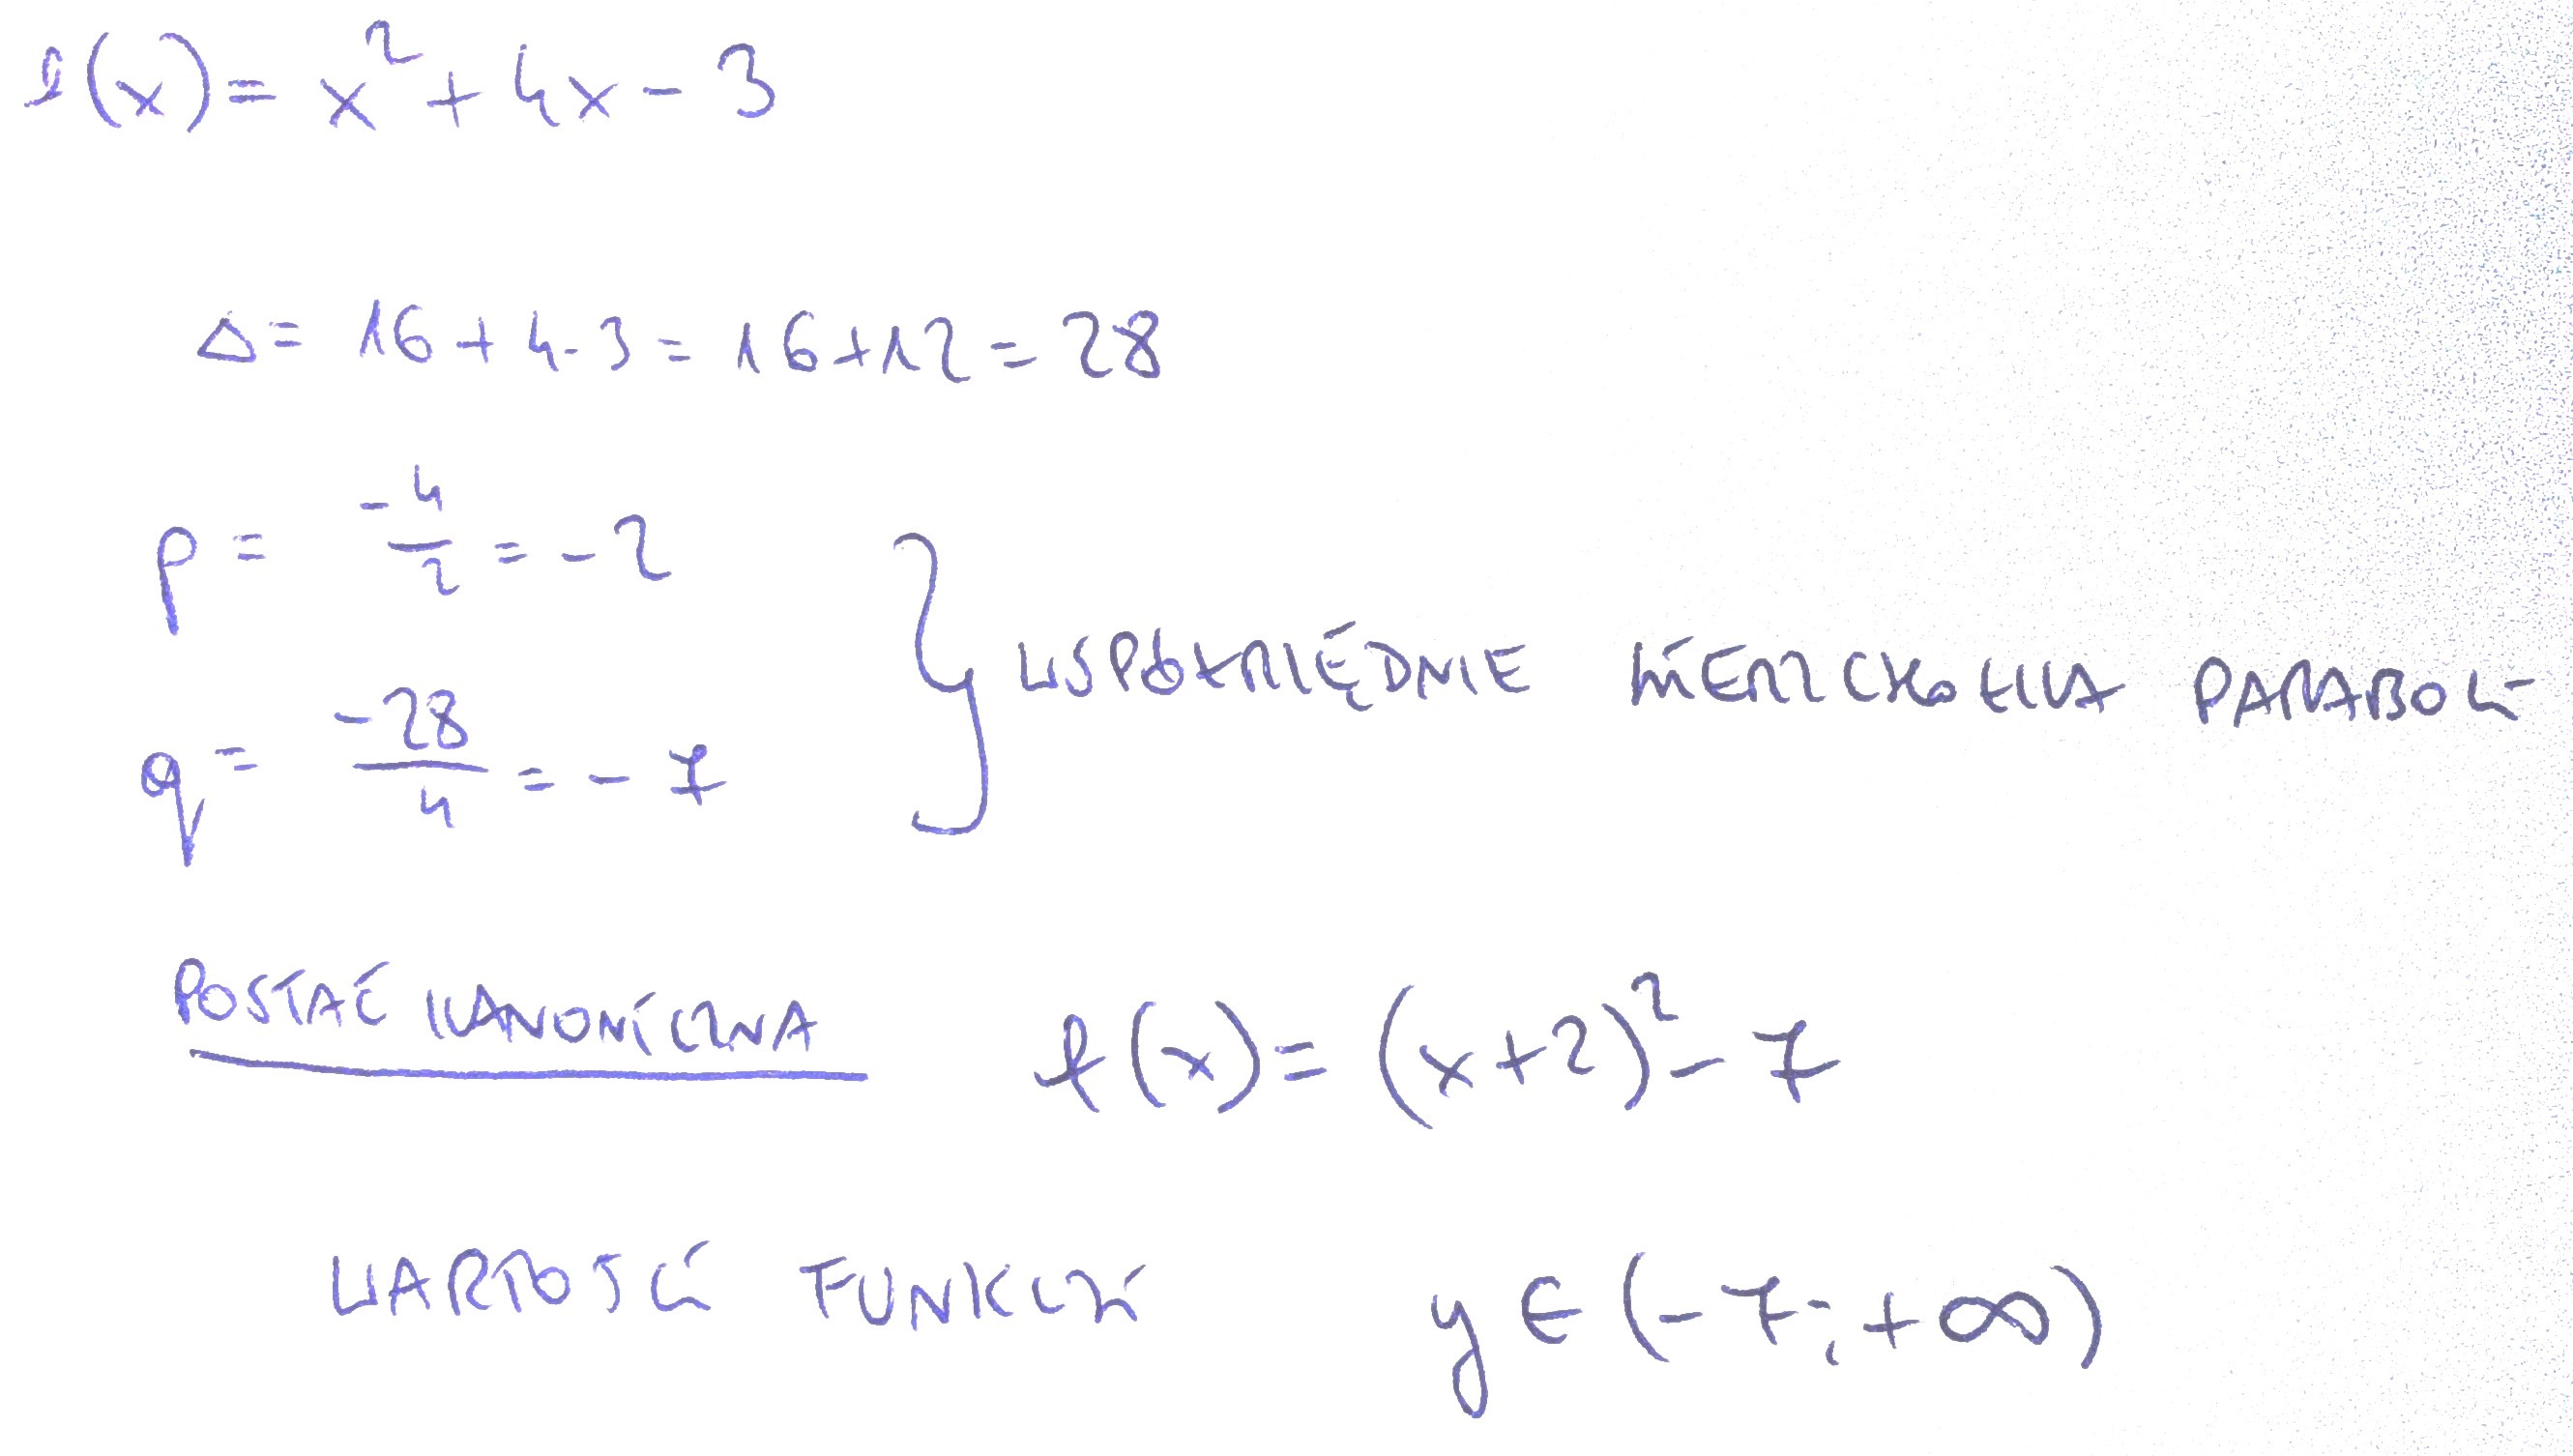 f(x) = x² + 4x - 3
Δ = 16 + 4·3 = 16 + 12 = 28
p = -4/2 = -2
q = -28/4 = -7
} WSPÓŁRZĘDNE WIERZCHOŁKA PARABOLI
POSTAĆ KANONICZNA f(x) = (x+2)² - 7
WARTOŚCI FUNKCJI y ∈ (-7; +∞)